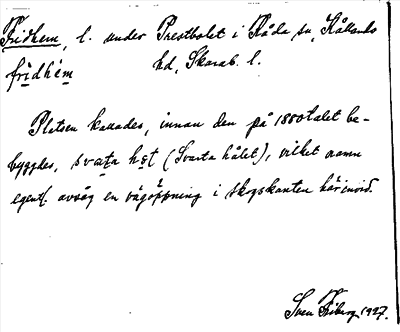 Fridhem, l. under Prestbolet i Råda sn, Kållands
fridhem hd, Skarab. l.
Platsen kallades, innan den på 1880talet be-
byggdes, svata hɷt (Svarta hålet), vilket namn
egentl. avsåg en vägöppning i skogskanten härinvid.
Sven Friberg 1927.